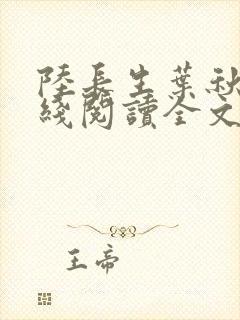 陸長生葉秋
綫閱讀全文
王帝